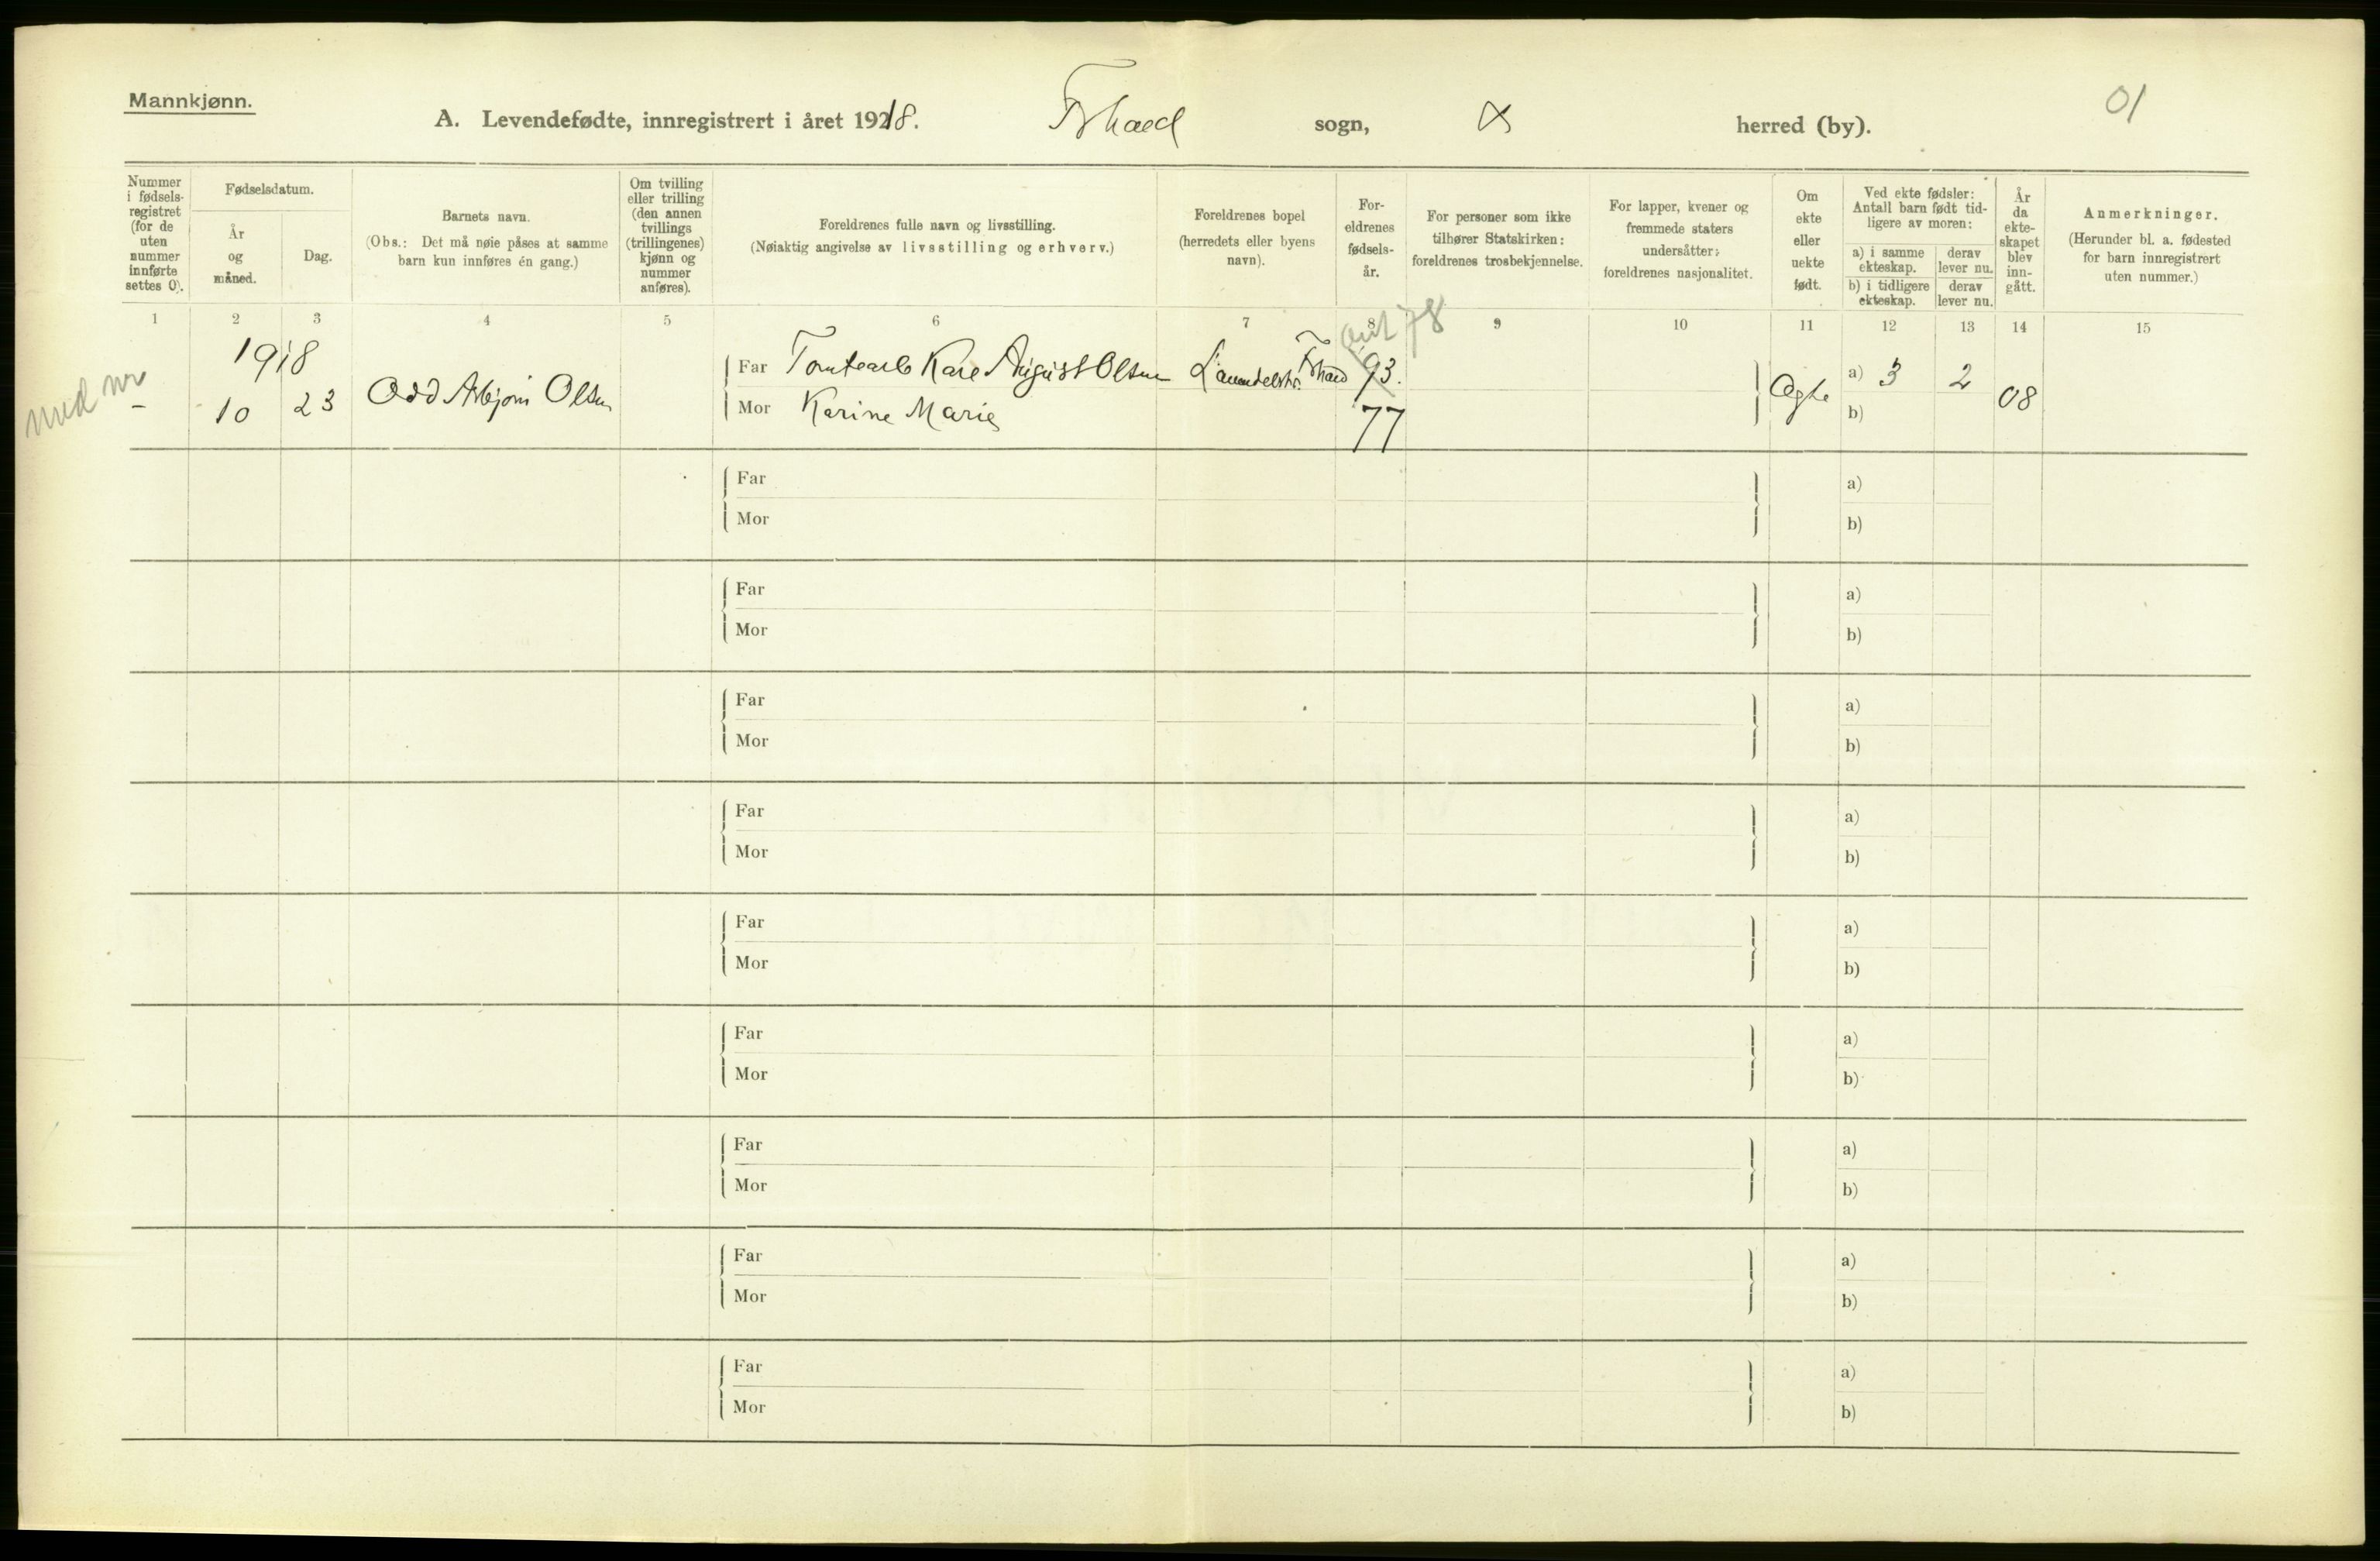 Mannkjønn.
A. Levendefødte, innregistrert i året 1918. Frhald sogn, herred (by).
01
Nummer i fødsels-registret (for de uten nummer innførte settes 0).
Fødselsdatum.
År og måned.
Dag.
Barnets navn.
(Obs.: Det må nøie påses at samme barn kun innføres én gang.)
Om tvilling eller trilling (den annen tvillings (trillingenes) kjønn og nummer anføres).
Foreldrenes fulle navn og livsstilling.
(Nøiaktig angivelse av livsstilling og erhverv.)
Foreldrenes bopel (herredets eller byens navn).
For-eldrenes fødsels-år.
For personer som ikke tilhører Statskirken: foreldrenes trosbekjennelse.
For lapper, kvener og fremmede staters undersåtter: foreldrenes nasjonalitet.
Om ekte eller uekte født.
Ved ekte fødsler: Antall barn født tid-ligere av moren:
a) i samme ekteskap.
derav lever nu.
b) i tidligere ekteskap.
derav lever nu.
År da ekte-skapet blev inn-gått.
Anmerkninger.
(Herunder bl. a. fødested for barn innregistrert uten nummer.)
1 2 3 4 5 6 7 8 9 10 11 12 13 14 15
ant 78
1918
med nr
– 10 23 Odd Asbjørn Olsen
Far Tomtearb Kare August Olsen 93.
Mor Karine Marie 77
Ægte a) 3 2 08
b)
Far a)
Mor b)
Far a)
Mor b)
Far a)
Mor b)
Far a)
Mor b)
Far a)
Mor b)
Far a)
Mor b)
Far a)
Mor b)
Far a)
Mor b)
Far a)
Mor b)